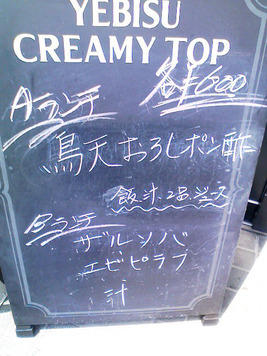 YEBISU
CREAMY TOP
Aランチ 各¥600
鳥天おろしポン酢
飯、汁、2品、ジュース
Bランチ
ザルソバ
エビピラフ
汁